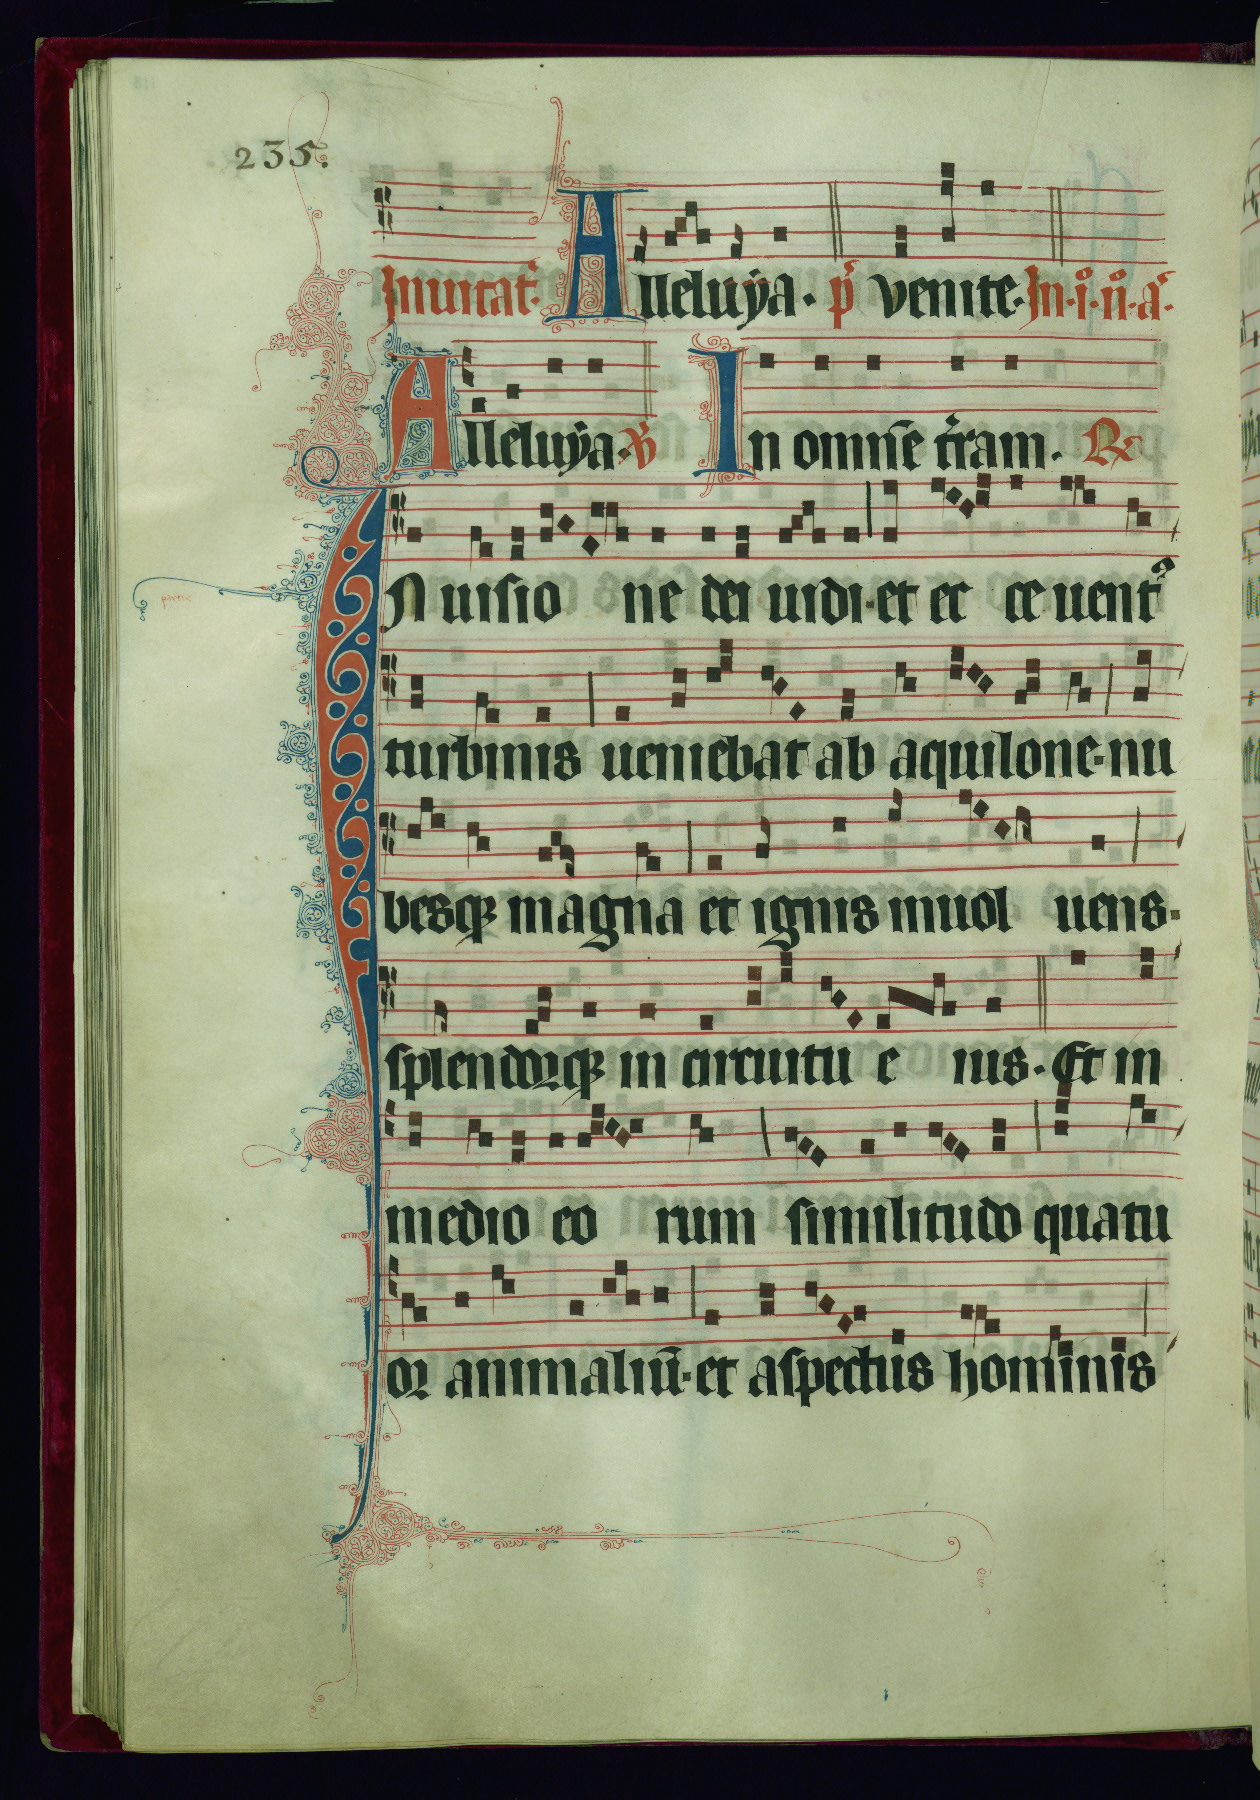 235.
Inuitat̄. Alleluẏa. p̄ venite. In .i. n̄. a.
Alleluẏa. V̄ In omnē t̄ram. R
IN uisio ne dei uidi. et ec ce uentꝰ
turbinis ueniebat ab aquilone. nu
besqꝫ magna et ignis inuol uens.
splendorqꝫ in circuitu e ius. Et in
medio eo rum similitudo quatu
or animaliū. et aspectus hominis